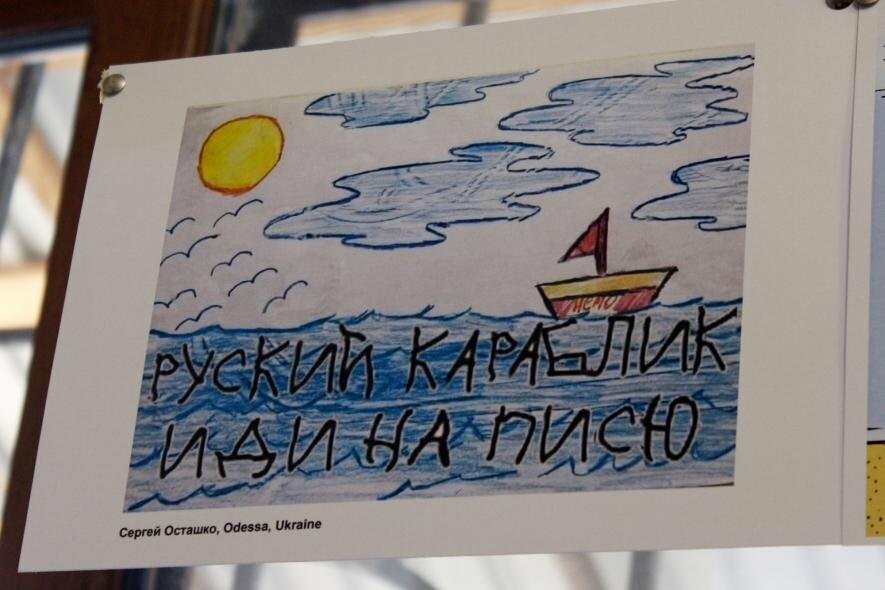 НЕМО
РУСКИЙ КАРАБЛИК
ИДИ НА ПИСЮ
Сергей Осташко, Odessa, Ukraine